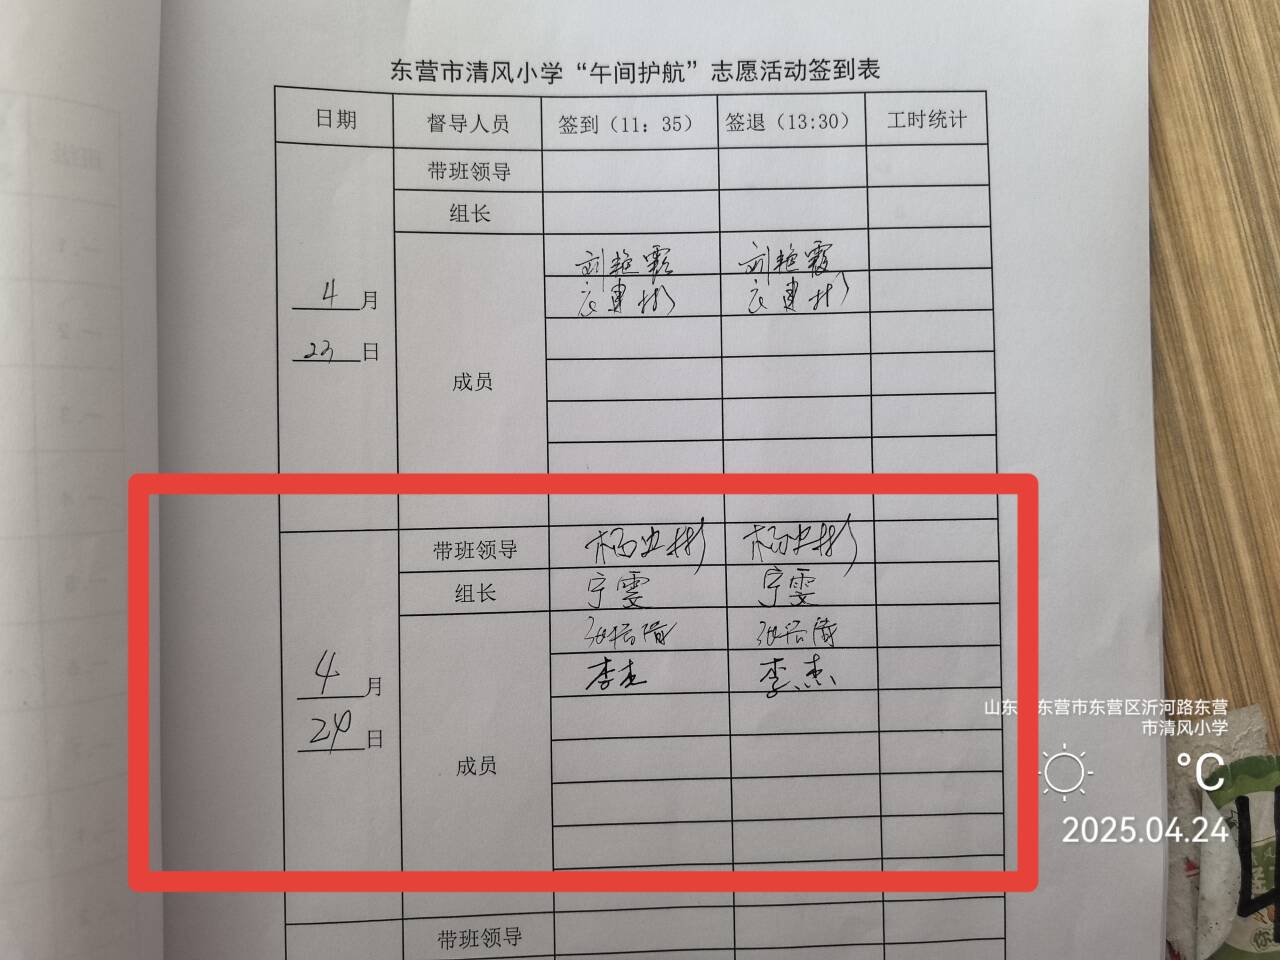 东营市清风小学“午间护航”志愿活动签到表
日期 督导人员 签到（11：35） 签退（13:30） 工时统计
带班领导
组长
刘艳霞 刘艳霞
4月
23日
成员
带班领导
组长 宁雯 宁雯
李杰 李杰
4月
24日
成员
带班领导
山东 东营市东营区沂河路东营
市清风小学
°C
2025.04.24